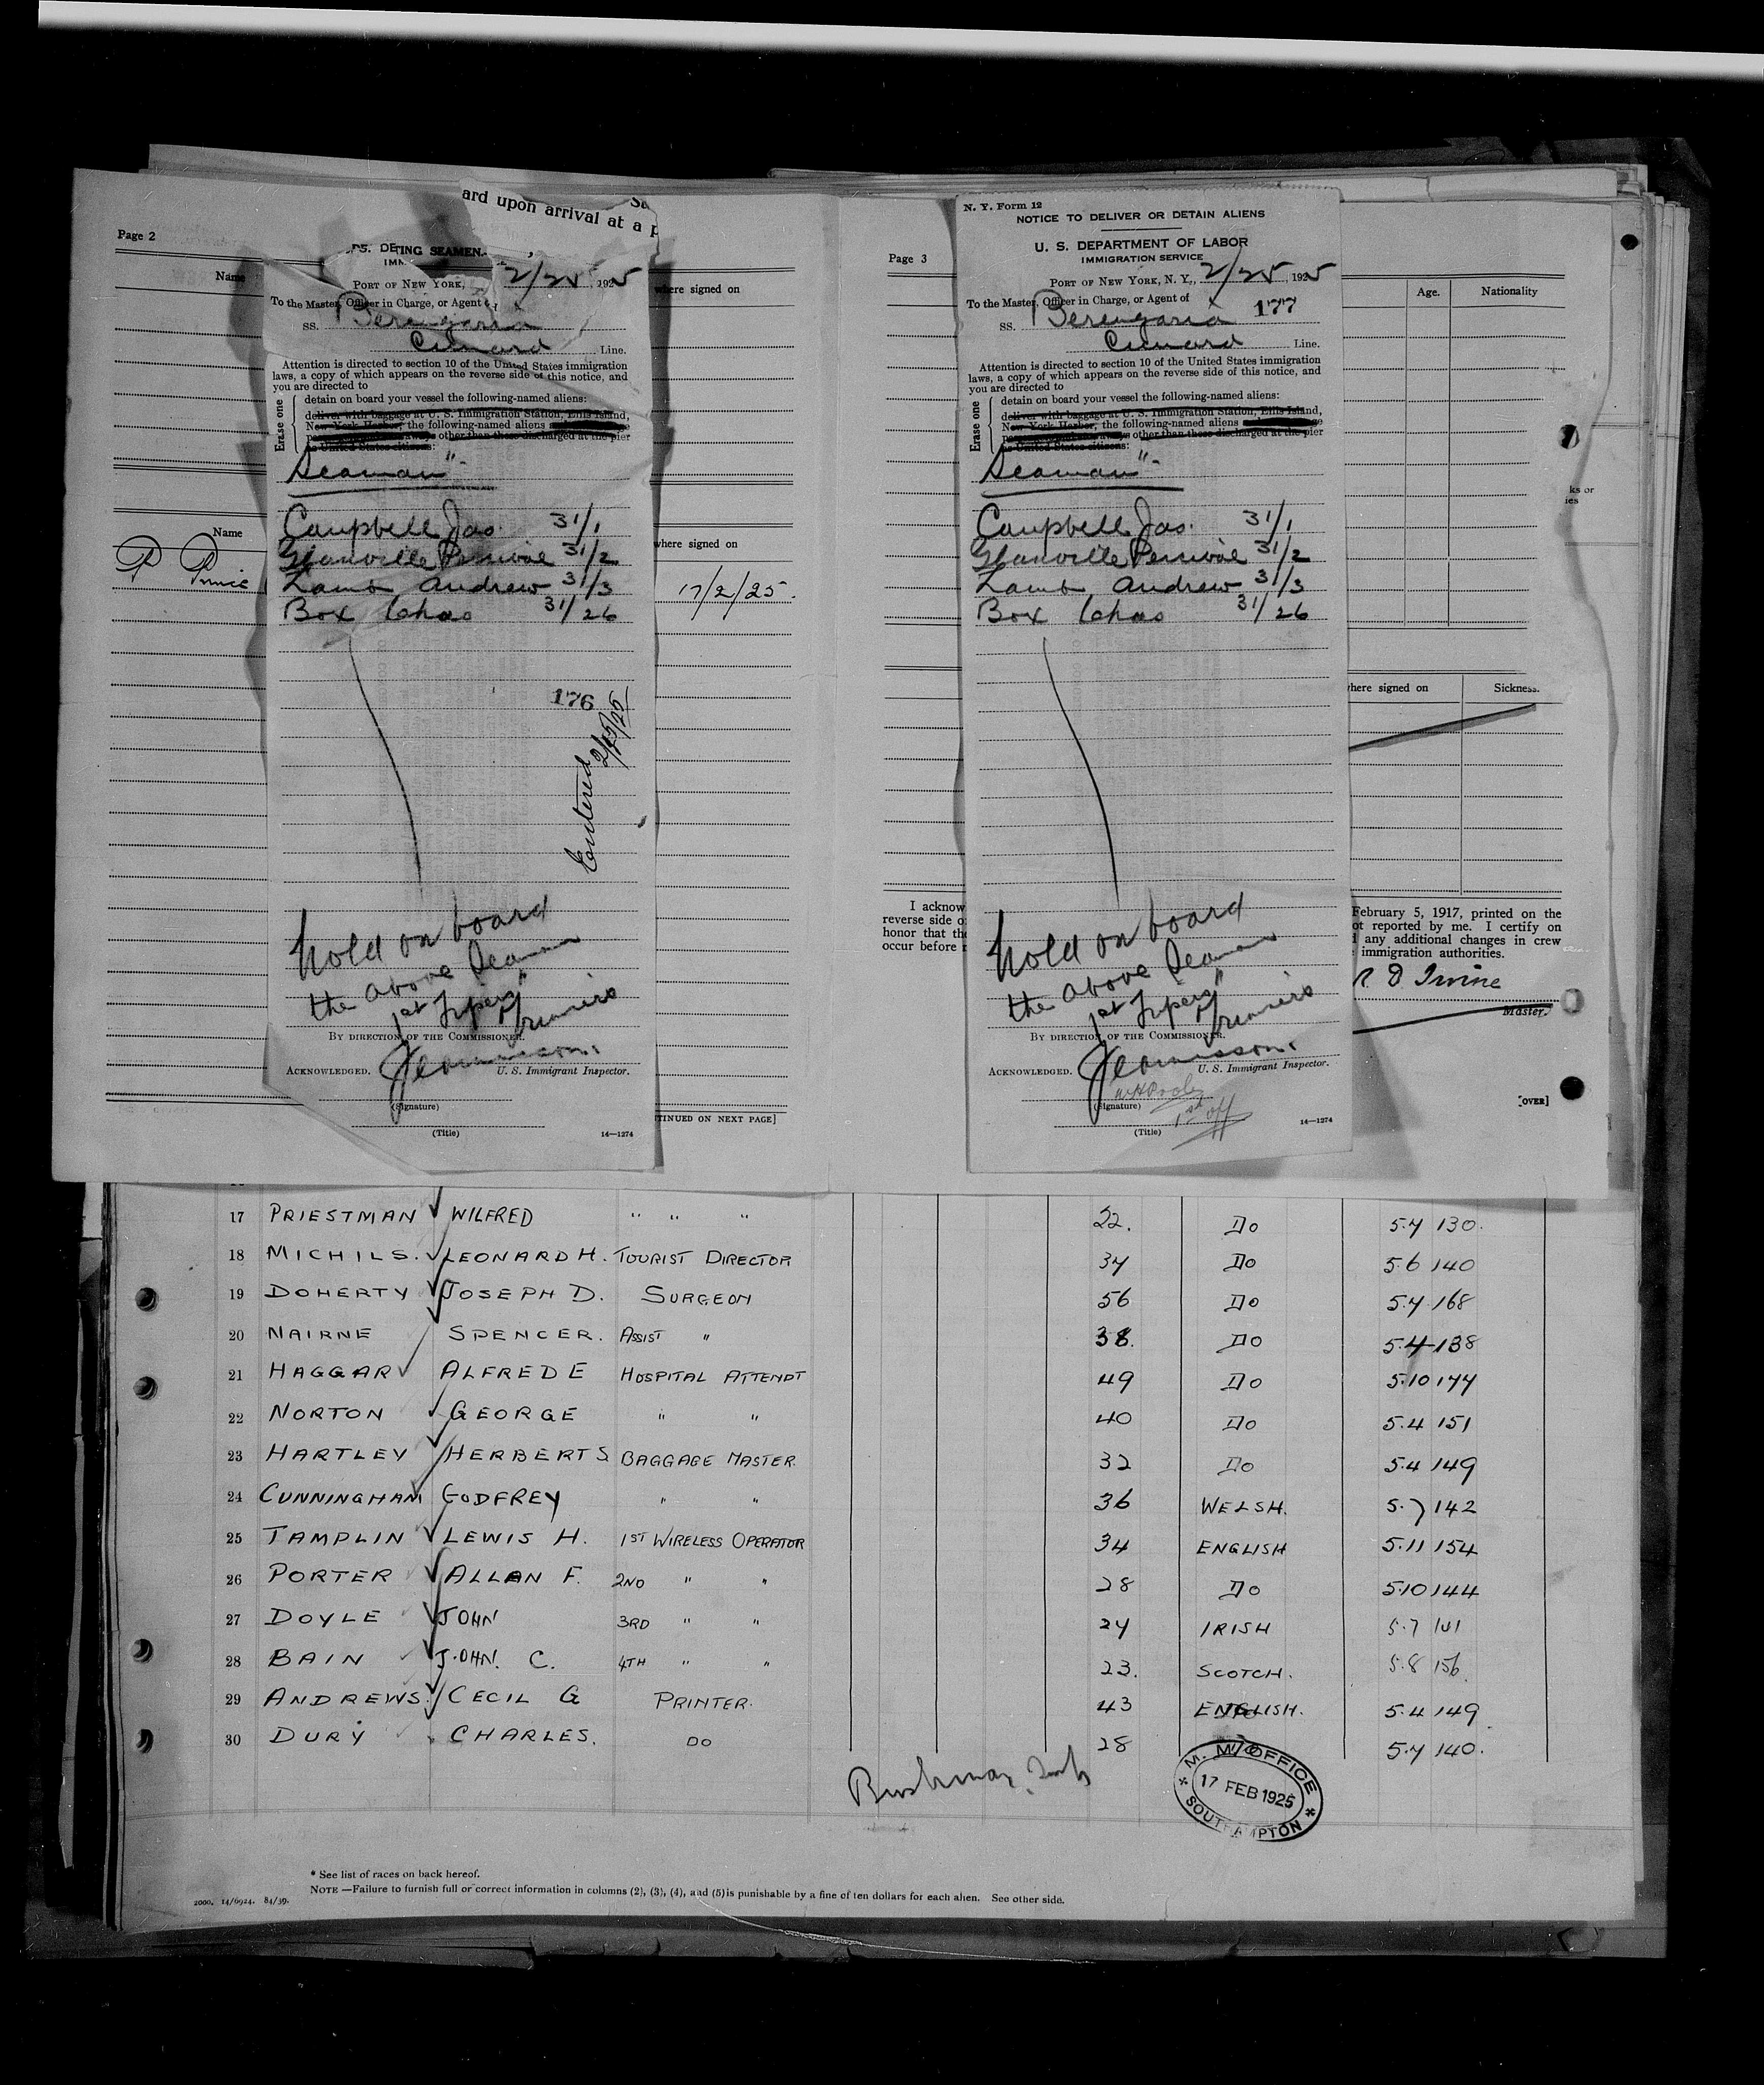 ard upon arrival at a
Page 2
Name
where signed on
TING SEAMEN
PORT OF NEW YORK, 2/25, 1925
To the Master, Officer in Charge, or Agent
SS. Berengaria
Cunard Line.
Attention is directed to section 10 of the United States immigration
laws, a copy of which appears on the reverse side of this notice, and
you are directed to
Erase one
detain on board your vessel the following-named aliens:
deliver with baggage at U. S. Immigration Station, Ellis Island,
New York Harbor, the following-named aliens
other than those discharged at the pier
as United States citizens:
Seaman"-
Campbell Jas. 31/1
Glanville 31/2
Lamb Andrew 31/3
Box Chas 31/26
Name
where signed on
17/2/25.
176
Entered 2/25/25
hold on board
the above Seamen
1st Trippers
BY DIRECTION OF THE COMMISSIONER.
ACKNOWLEDGED.
U. S. Immigrant Inspector.
(Signature)
(Title)
14—1274
TINUED ON NEXT PAGE]
Page 3
N. Y. Form 12
NOTICE TO DELIVER OR DETAIN ALIENS
U. S. DEPARTMENT OF LABOR
IMMIGRATION SERVICE
PORT OF NEW YORK, N. Y., 2/25, 1925
To the Master, Officer in Charge, or Agent of
177
SS. Berengaria
Cunard Line.
Attention is directed to section 10 of the United States immigration
laws, a copy of which appears on the reverse side of this notice, and
you are directed to
Erase one
detain on board your vessel the following-named aliens:
deliver with baggage at U. S. Immigration Station, Ellis Island,
New York Harbor, the following-named aliens
other than those discharged at the pier
as United States citizens:
Seaman"-
Campbell Jas. 31/1
Glanville 31/2
Lamb Andrew 31/3
Box Chas 31/26
hold on board
the above Seamen
1st Trippers
BY DIRECTION OF THE COMMISSIONER.
ACKNOWLEDGED.
U. S. Immigrant Inspector.
(Signature)
1st off
(Title)
14—1274
Age. Nationality
ks or
ies
where signed on Sickness.
I acknow
reverse side o
honor that the
occur before
February 5, 1917, printed on the
ot reported by me. I certify on
any additional changes in crew
immigration authorities.
R D Irvine
Master.
[OVER]
17 PRIESTMAN WILFRED " " " 22. Do 5.4 130.
18 MICHILS. LEONARD H. TOURIST DIRECTOR 34 Do 5.6 140
19 DOHERTY JOSEPH D. SURGEON 56 Do 5.4 168
20 NAIRNE SPENCER. ASSIST " 38. Do 5.4 138
21 HAGGAR ALFRED E HOSPITAL ATTENDT 49 Do 5.10 144
22 NORTON GEORGE " " 40 Do 5.4 151
23 HARTLEY HERBERT S BAGGAGE MASTER. 32 Do 5.4 149
24 CUNNINGHAM GODFREY " " 36 WELSH. 5.7 142
25 TAMPLIN LEWIS H. 1ST WIRELESS OPERATOR 34 ENGLISH 5.11 154
26 PORTER ALLAN F. 2ND " " 28 Do 5.10 144
27 DOYLE JOHN 3RD " " 24 IRISH 5.7 141
28 BAIN JOHN. C. 4TH " " 23. SCOTCH. 5.8 156
29 ANDREWS. CECIL G PRINTER. 43 ENGLISH. 5.4 149
30 DURY CHARLES. DO 28 5.4 140.
M. M. OFFICE
17 FEB 1925
SOUTHAMPTON
* See list of races on back hereof.
NOTE —Failure to furnish full or correct information in columns (2), (3), (4), and (5) is punishable by a fine of ten dollars for each alien. See other side.
2000. 14/6924. 84/39.